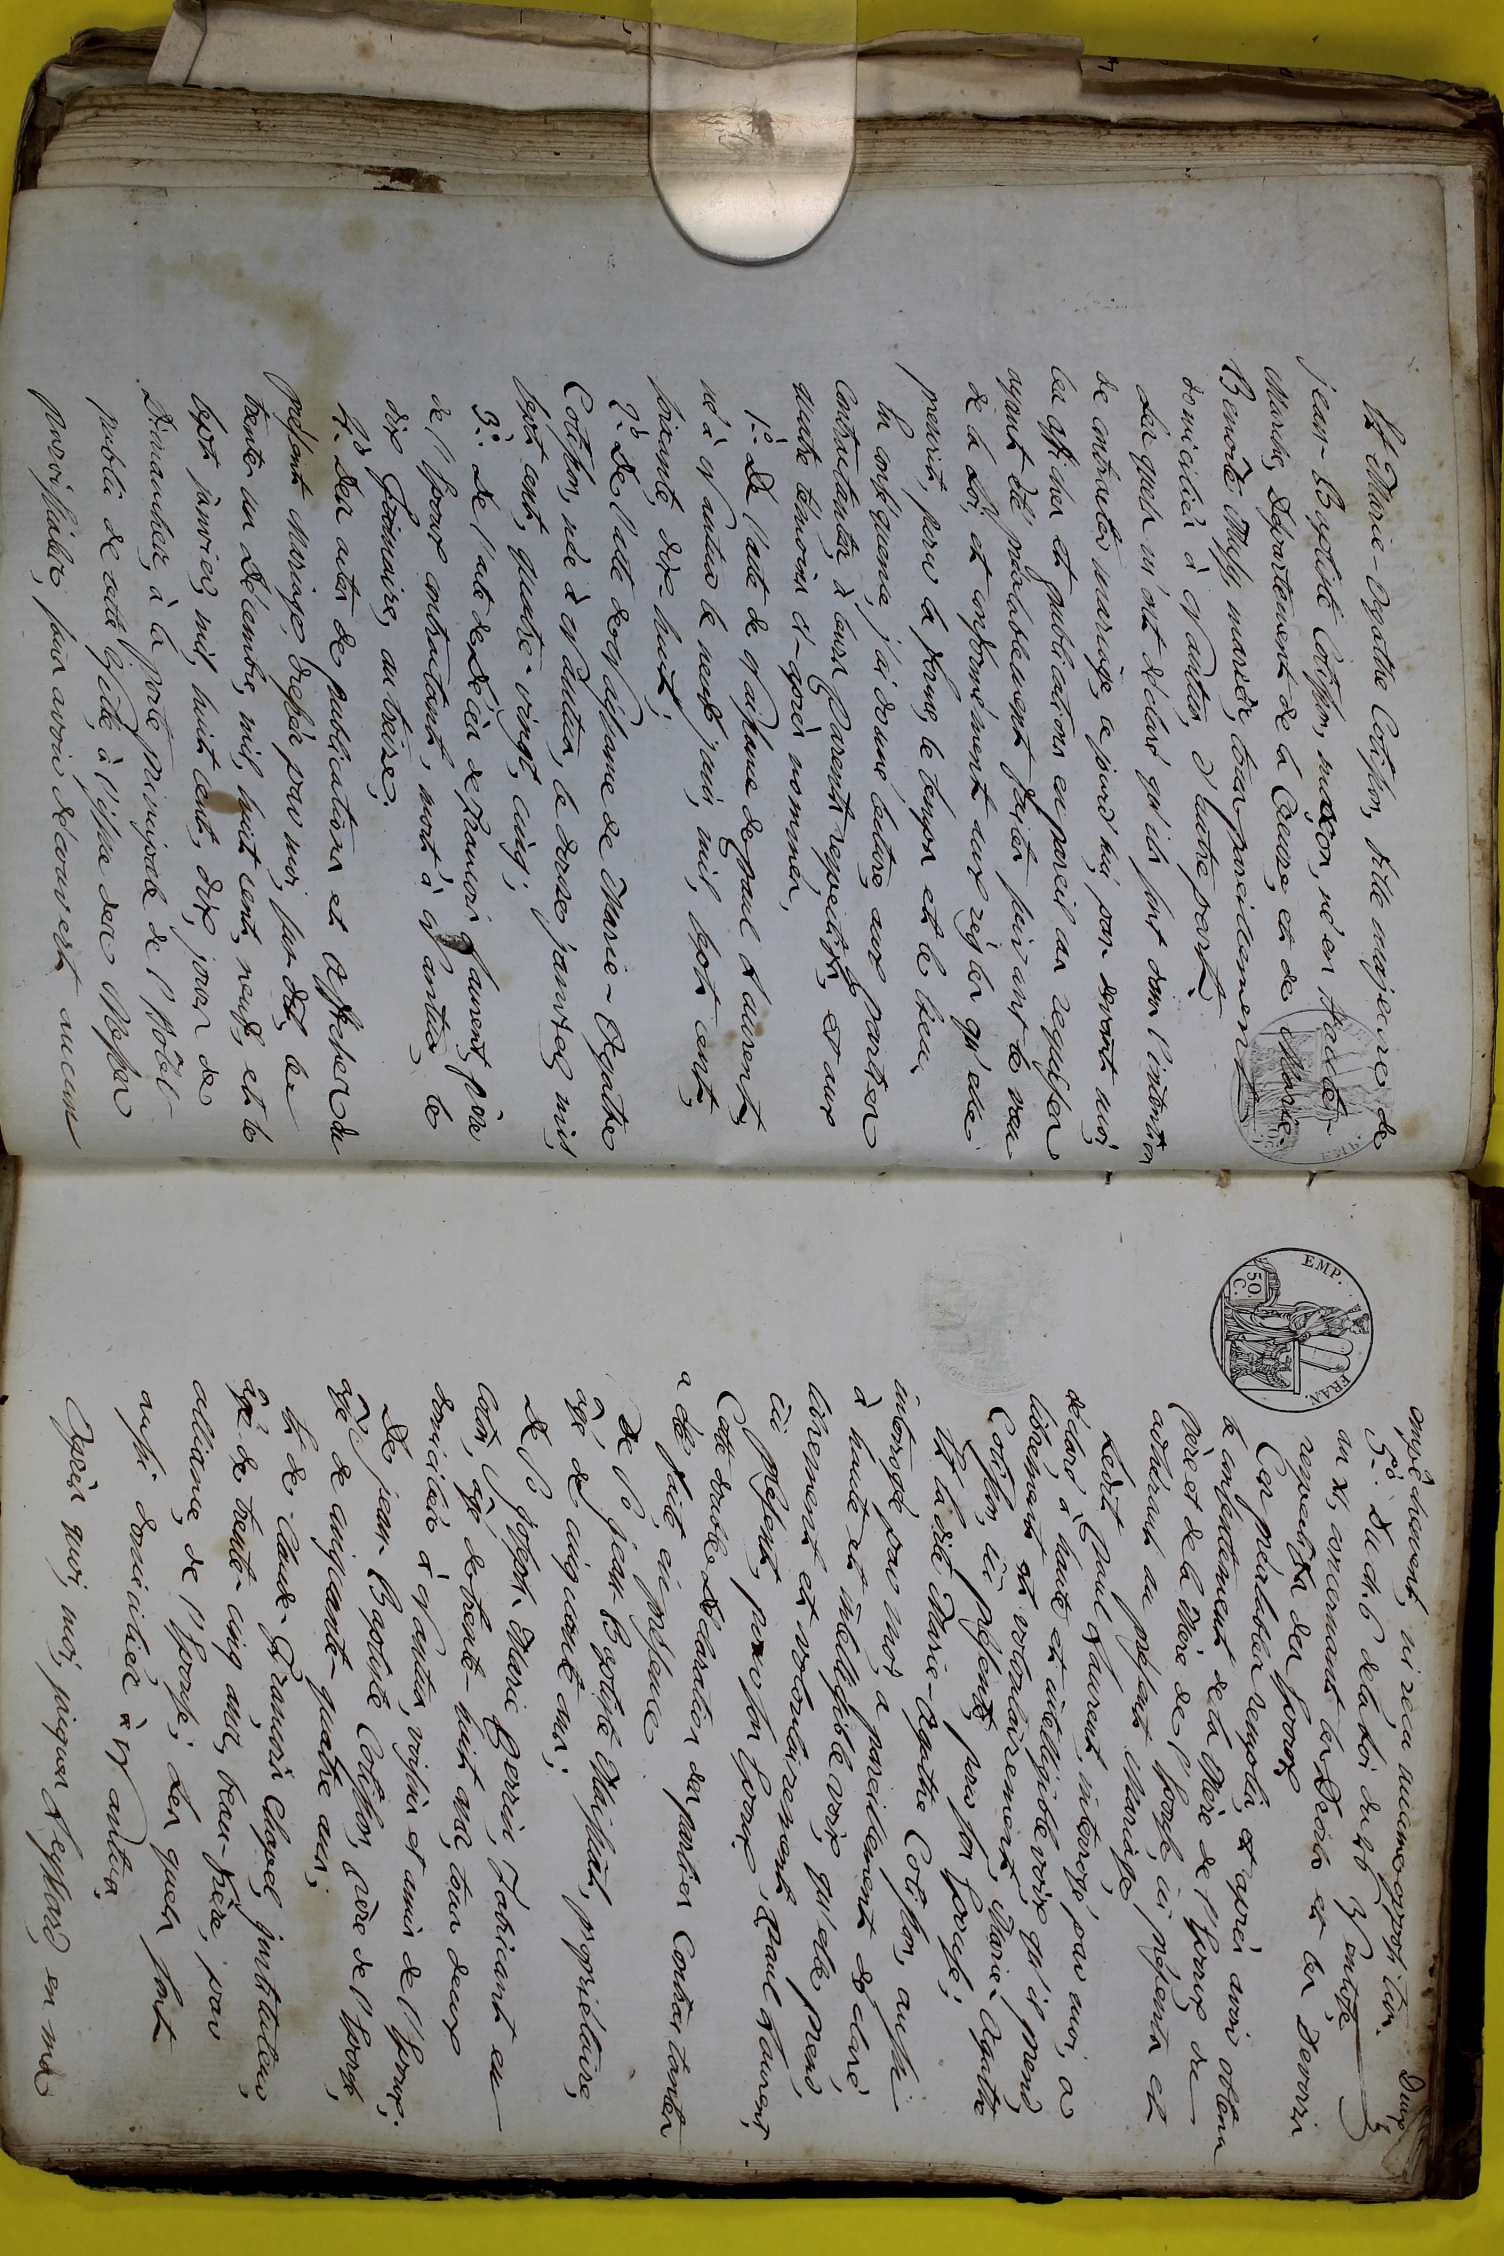 Et Marie-Agathe Cotiffon, fille majeure de
jean-Baptiste Cotiffon, maçon, né en haute-
Marche, Département de la Creuse, et de Marie-
Benoîte Thuly, mariés, tous pareillement
domiciliés à Nantua, d'autre part.
Les quels m'ont déclaré qu'ils sont dans l'intention
de contracter mariage, ce jourd'hui, par devant moi,
les affiches et publications en pareil cas requises
ayant été préalablement faites suivant le vœu
de la Loi, et conformément aux règles qu'elle
prescrit, pour la forme, le temps et le lieu,
En conséquence, j'ai donné lecture, aux parties
Contractantes, à leurs Parents respectifs, et aux
quatre témoins ci-après nommés,
1.º De l'acte de naissance de paul Laurent,
né à Nantua le neuf juin, mil, sept cent,
soixante, dix huit;
2.º De l'acte de naissance de Marie-Agathe
Cotiffon, née à Nantua, le douze janvier, mil,
sept cent, quatre-vingt, cinq;
3.º De l'acte de Décès de françois Laurent, père
de l'Epoux contractant, mort à Nantua, le
dix frimaire, an treize,
4.º Des actes de publications et affiches du
présent Mariage, dressés par moi, sur dix, les
trente un Décembre, mil, huit cent, neuf, et le
sept janvier, mil, huit cent, dix, jours de
Dimanches, à la porte principale de l'hôtel
public de cette Ville, à l'issue des Messes
paroissiales, sans avoir découvert aucun
Deux
empêchement, ni reçu aucune opposition.
5.º Du ch. 6 de la Loi du 26 Ventose
an XI, concernant les Droits et les Devoirs
respectifs des Epoux
Ces préalables remplis, et après avoir obtenu
le consentement de la Mère de l'Epoux, du
Père et de la Mère de l'Epouse, ici présents et
adhérant au présent Mariage
Ledit Paul Laurent, interrogé, par moi, a
déclaré à haute et intelligible voix qu'il prend,
librement et volontairement, Marie-Agathe
Cotiffon, ici présente, pour son Epouse;
Et la dite Marie-Agathe Cotiffon, aussi
interrogé, par moi, a pareillement déclaré,
à haute et intelligible voix, qu'elle prend,
librement et volontairement, Paul Laurent,
ici présent, pour son Epoux
Cette double déclaration des parties Contractantes
a été faite, en présence
De S.r jean-Baptiste Maissiat, propriétaire,
âgé de cinquante ans;
De S.r joseph-Marie Perrin, Fabricant en
Coton, âgé de trente-huit ans, tous deux
domiciliés à Nantua, voisins et amis de l'Epoux;
De jean-Baptiste Cotiffon, Père de l'Epouse,
âgé de cinquante-quatre ans;
Et de Claude-François Chapel, instituteur,
âgé de trente-cinq ans, beau-frère, par
alliance, de l'Epouse; Les quels sont
aussi domiciliés à Nantua,
Après quoi, moi, jacques Leyssard, en ma
EMP. FRAN.
50 C.